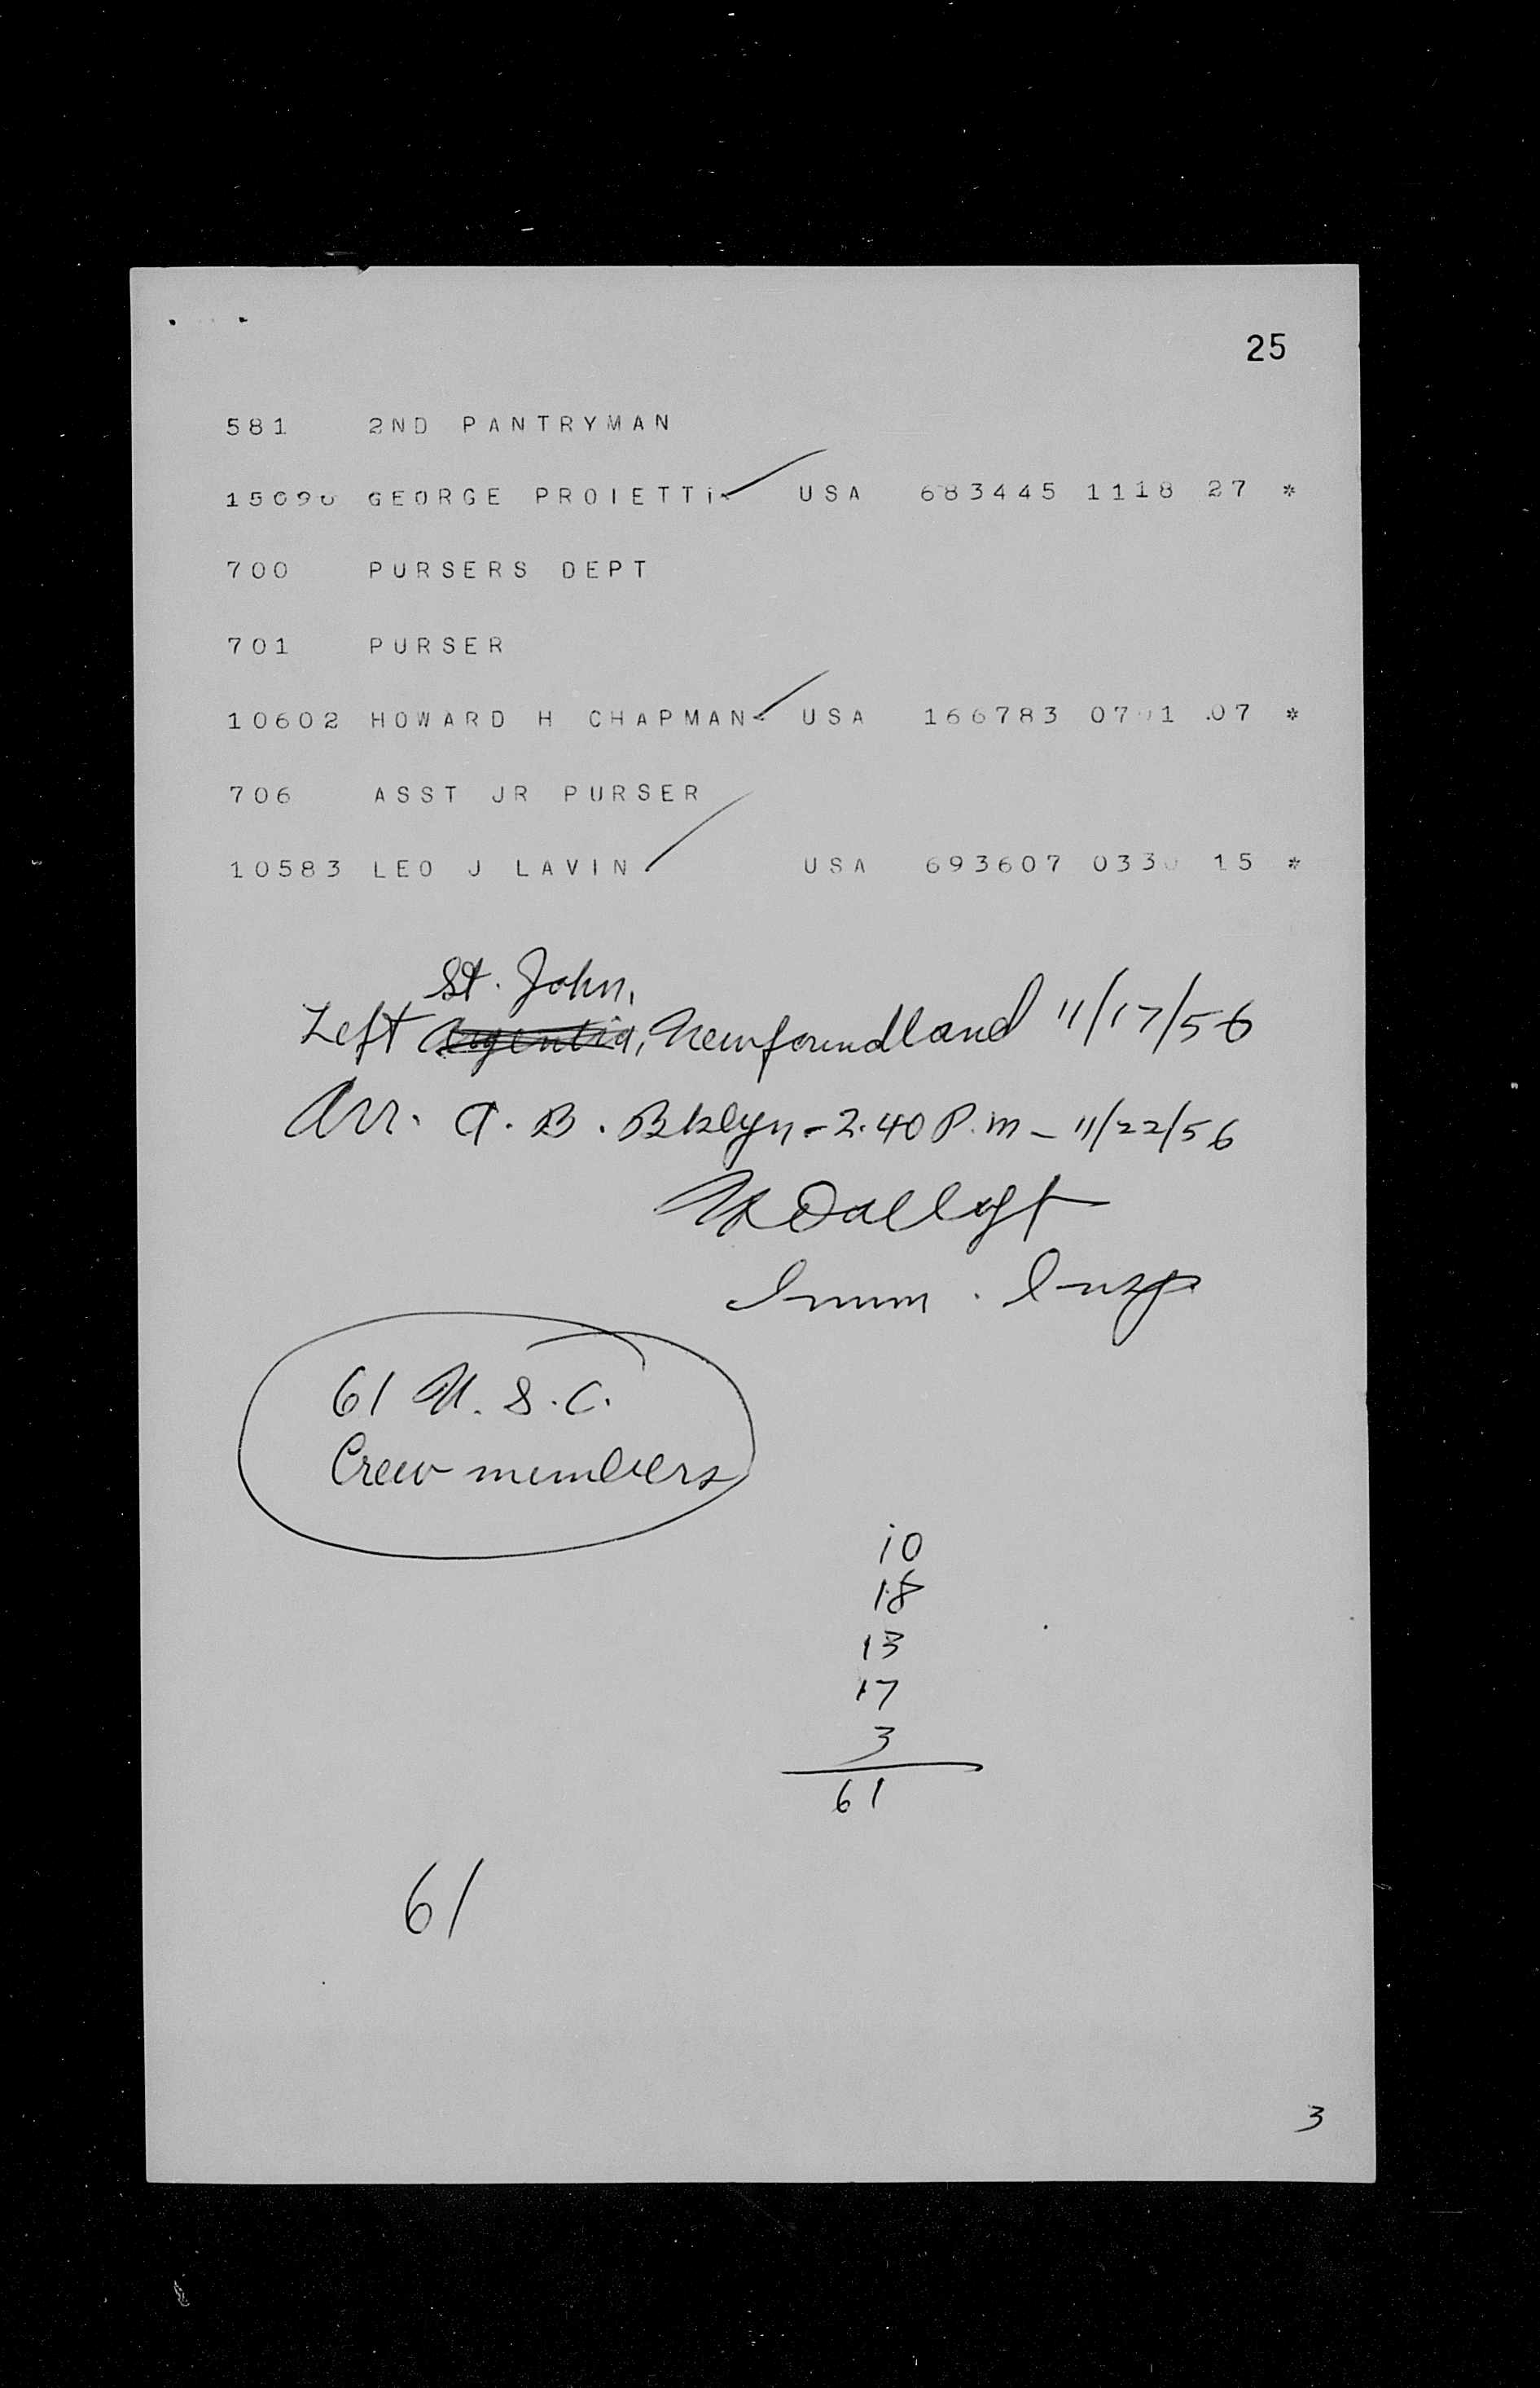 25
581 2ND PANTRYMAN
GEORGE PROIETTI USA 683445 1118 27 *
700 PURSERS DEPT
701 PURSER
10602 HOWARD H CHAPMAN USA 166783 07 1 07 *
706 ASST JR PURSER
10583 LEO J LAVIN USA 693607 0330 15 *
St. John,
Left Argentia, Newfoundland 11/17/56
Arr. A. B. Bklyn - 2.40 P.m - 11/22/56
Imm. Insp
61 U.S.C.
Crew members
10
18
13
17
3
61
61
3